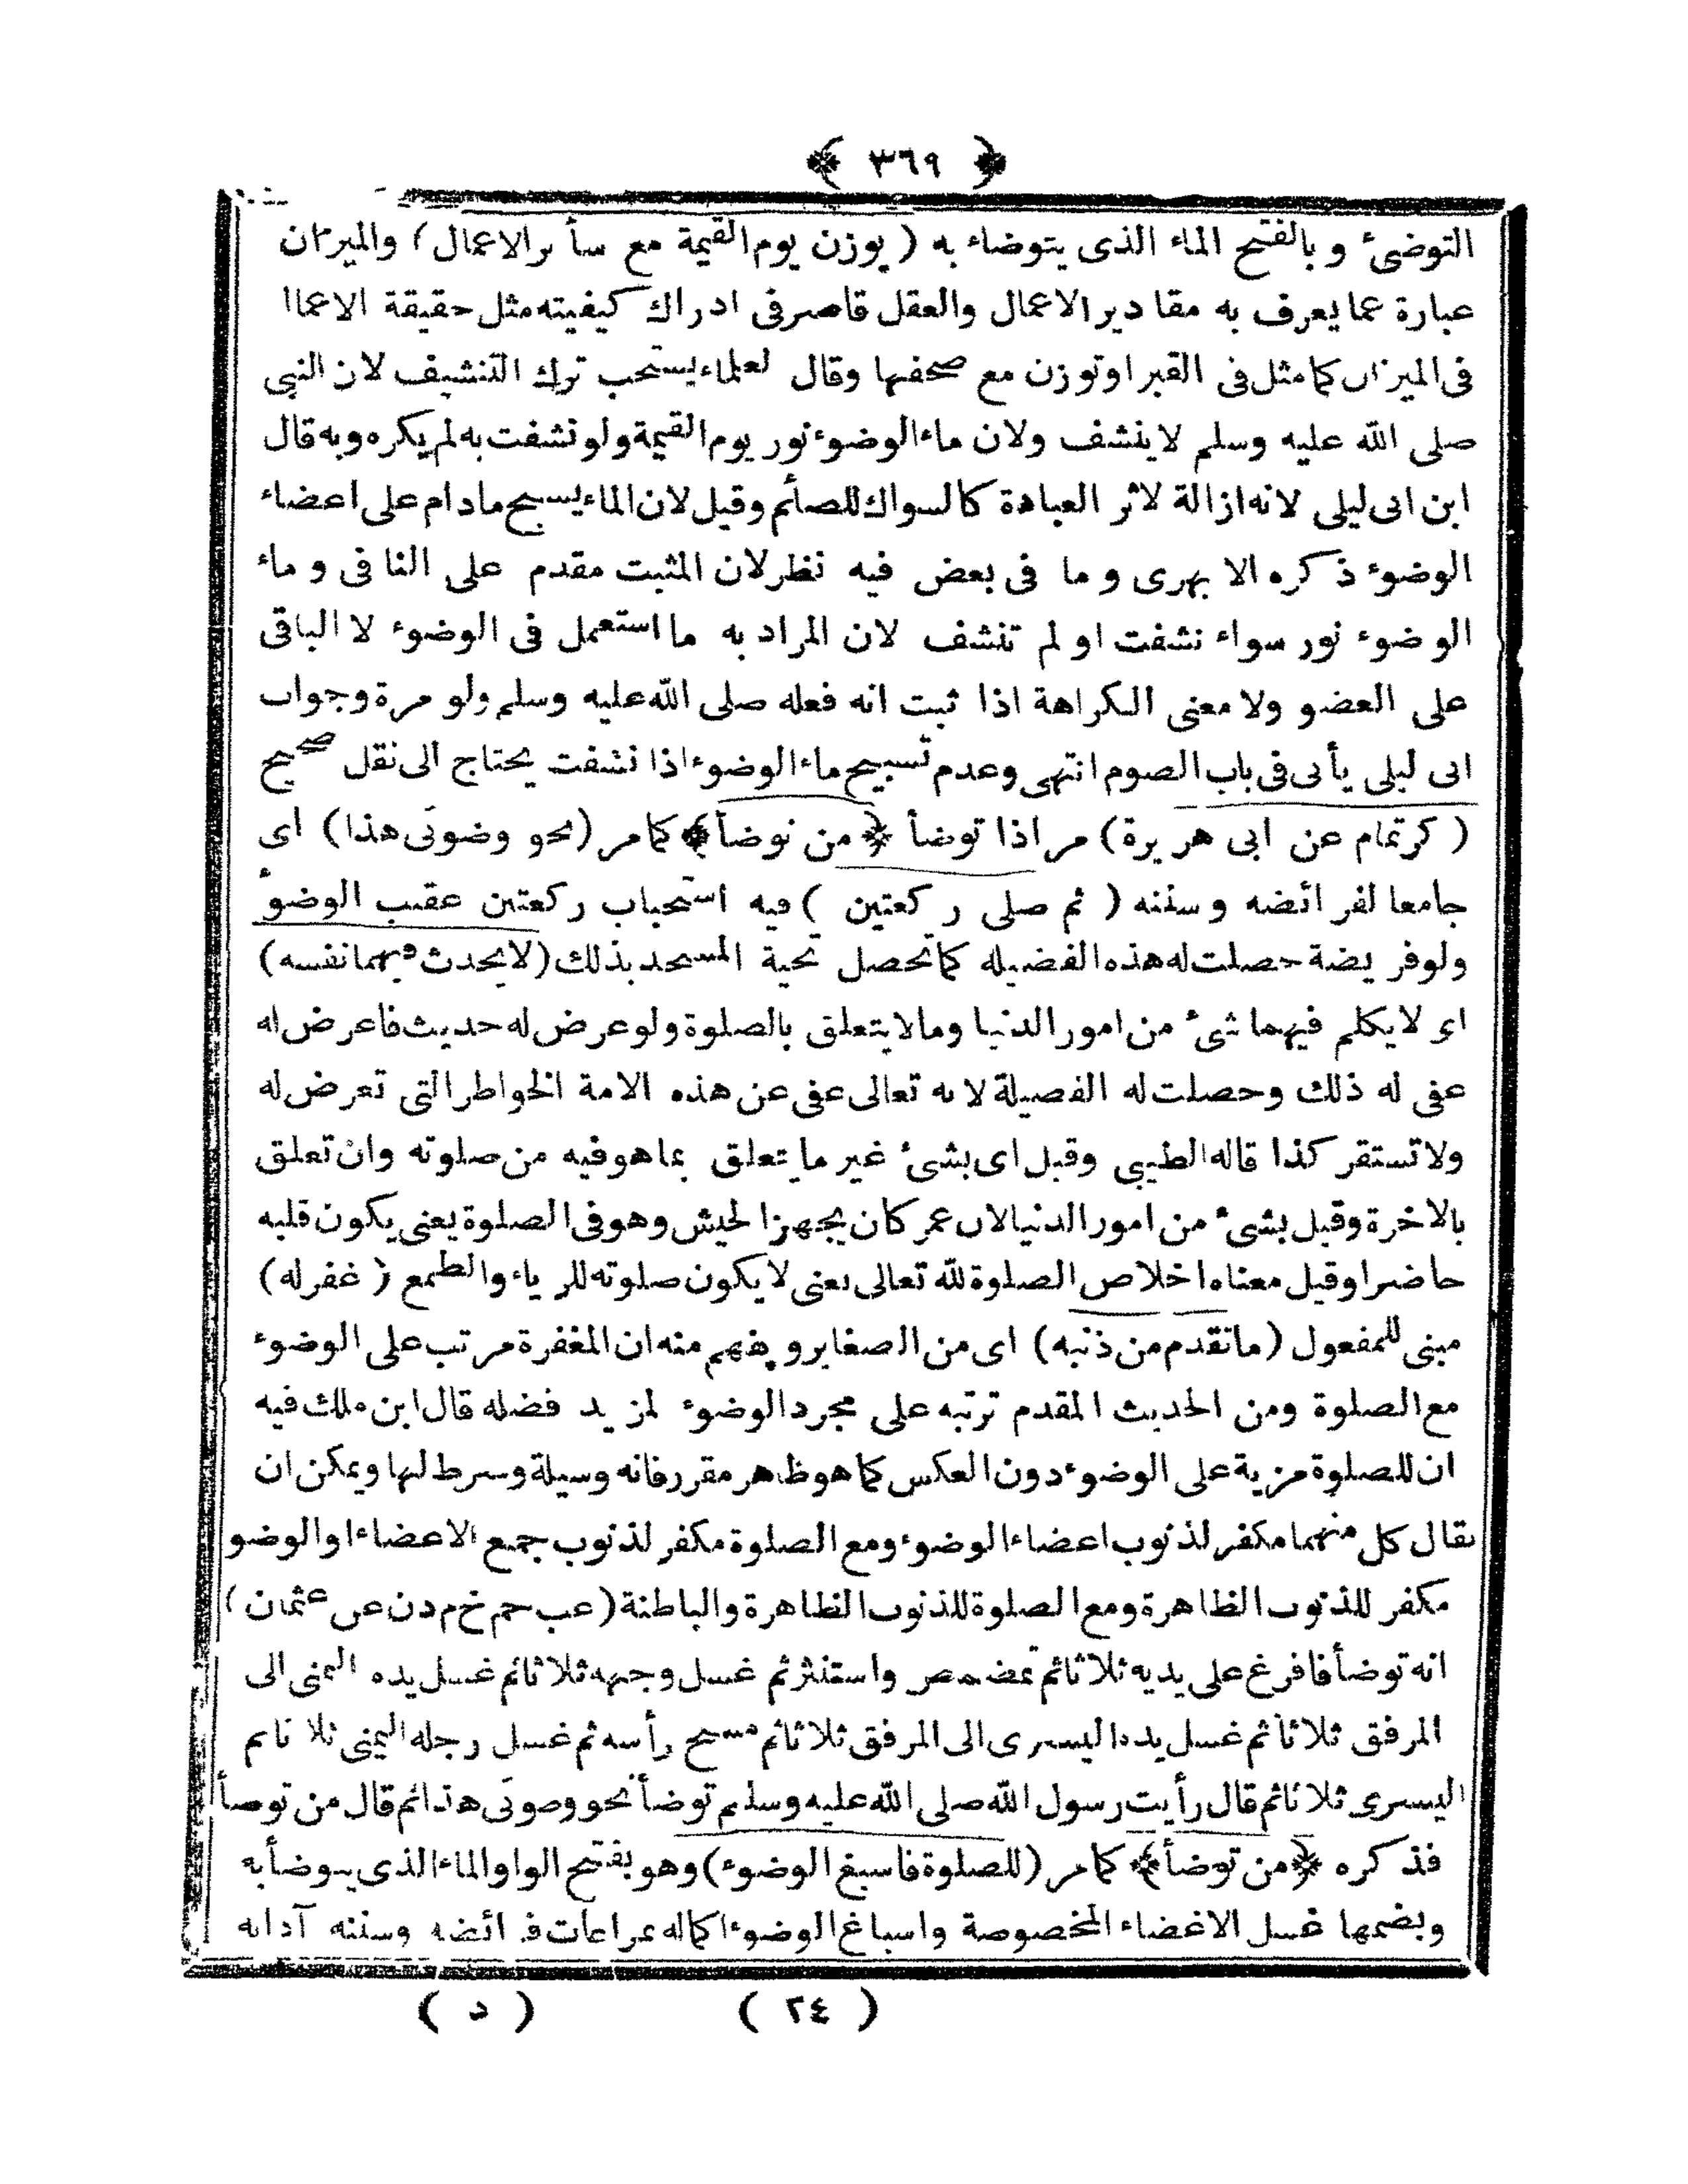 ﴿ ٣٦٩ ﴾
التوضئ وبالفتح الماء الذى يتوضاء به ( يوزن يوم القيمة مع سائر الاعمال ) والميزان
عبارة عما يعرف به مقادير الاعمال والعقل قاصر فى ادراك كيفيته مثل حقيقة الاعما
فى الميزان كما مثل فى القبر او توزن مع صحفها وقال لعلماء يستحب ترك التنشيف لان النبى
صلى الله عليه وسلم لا ينشف ولان ماء الوضوء نور يوم القيمة ولو نشفت به لم يكره وبه قال
ابن ابى ليلى لانه ازالة لاثر العبادة كالسواك للصائم وقيل لان الماء يسبح مادام على اعضاء
الوضوء ذكره الابهرى وما فى بعض فيه نظر لان المثبت مقدم على النافى وماء
الوضوء نور سواء نشفت او لم تنشف لان المراد به ما استعمل فى الوضوء لا الباقى
على العضو ولا معنى الكراهة اذا ثبت انه فعله صلى الله عليه وسلم ولو مرة وجواب
ابى ليلى يأتى فى باب الصوم انتهى وعدم تسبيح ماء الوضوء اذا نشفت يحتاج الى نقل صحيح
( كرتمام عن ابى هريرة ) مر اذا توضأ ﴿ من توضأ ﴾ كما مر ( نحو وضوئى هذا ) اى
جامعا لفرائضه وسننه ( ثم صلى ركعتين ) فيه استحباب ركعتين عقب الوضوء
ولو فريضة حصلت له هذه الفضيله كما تحصل تحية المسجد بذلك ( لا يحدث فيهما نفسه )
اى لا يكلم فيهما شئ من امور الدنيا وما لا يتعلق بالصلوة ولو عرض له حديث فاعرض له
عفى له ذلك وحصلت له الفضيلة لانه تعالى عفى عن هذه الامة الخواطر التى تعرض له
ولا تستقر كذا قاله الطيبى وقيل اى بشئ غير ما يتعلق بما هو فيه من صلوته وان تعلق
بالاخرة وقيل بشئ من امور الدنيا لان عمر كان يجهز الجيش وهو فى الصلوة يعنى يكون قلبه
حاضرا وقيل معناه اخلاص الصلوة لله تعالى يعنى لا يكون صلوته للرياء والطمع ( غفر له )
مبنى للمفعول ( ما تقدم من ذنبه ) اى من الصغاير ويفهم منه ان المغفرة مرتب على الوضوء
مع الصلوة ومن الحديث المقدم ترتبه على مجرد الوضوء لمزيد فضله قال ابن ملك فيه
ان للصلوة مزية على الوضوء دون العكس كما هو ظاهر مقرر فانه وسيلة وشرط لها ويمكن ان
يقال كل منهما مكفر لذنوب اعضاء الوضوء ومع الصلوة مكفر لذنوب جميع الاعضاء او الوضو
مكفر للذنوب الظاهرة ومع الصلوة للذنوب الظاهرة والباطنة ( عب حم خ م د ن عن عثمان )
انه توضأ فافرغ على يديه ثلاثا ثم تمضمض واستنثر ثم غسل وجهه ثلاثا ثم غسل يده اليمنى الى
المرفق ثلاثا ثم غسل يده اليسرى الى المرفق ثلاثا ثم مسح رأسه ثم غسل رجله اليمنى ثلاثا ثم
اليسرى ثلاثا ثم قال رأيت رسول الله صلى الله عليه وسلم توضأ نحو وضوئى هذا ثم قال من توضأ
فذكره ﴿ من توضأ ﴾ كما مر ( للصلوة فاسبغ الوضوء ) وهو بفتح الواو الماء الذى يتوضأ به
وبضمها غسل الاعضاء المخصوصة واسباغ الوضوء اكماله بمراعات فرائضه وسننه آدابه
( ٢٤ ) ( د )